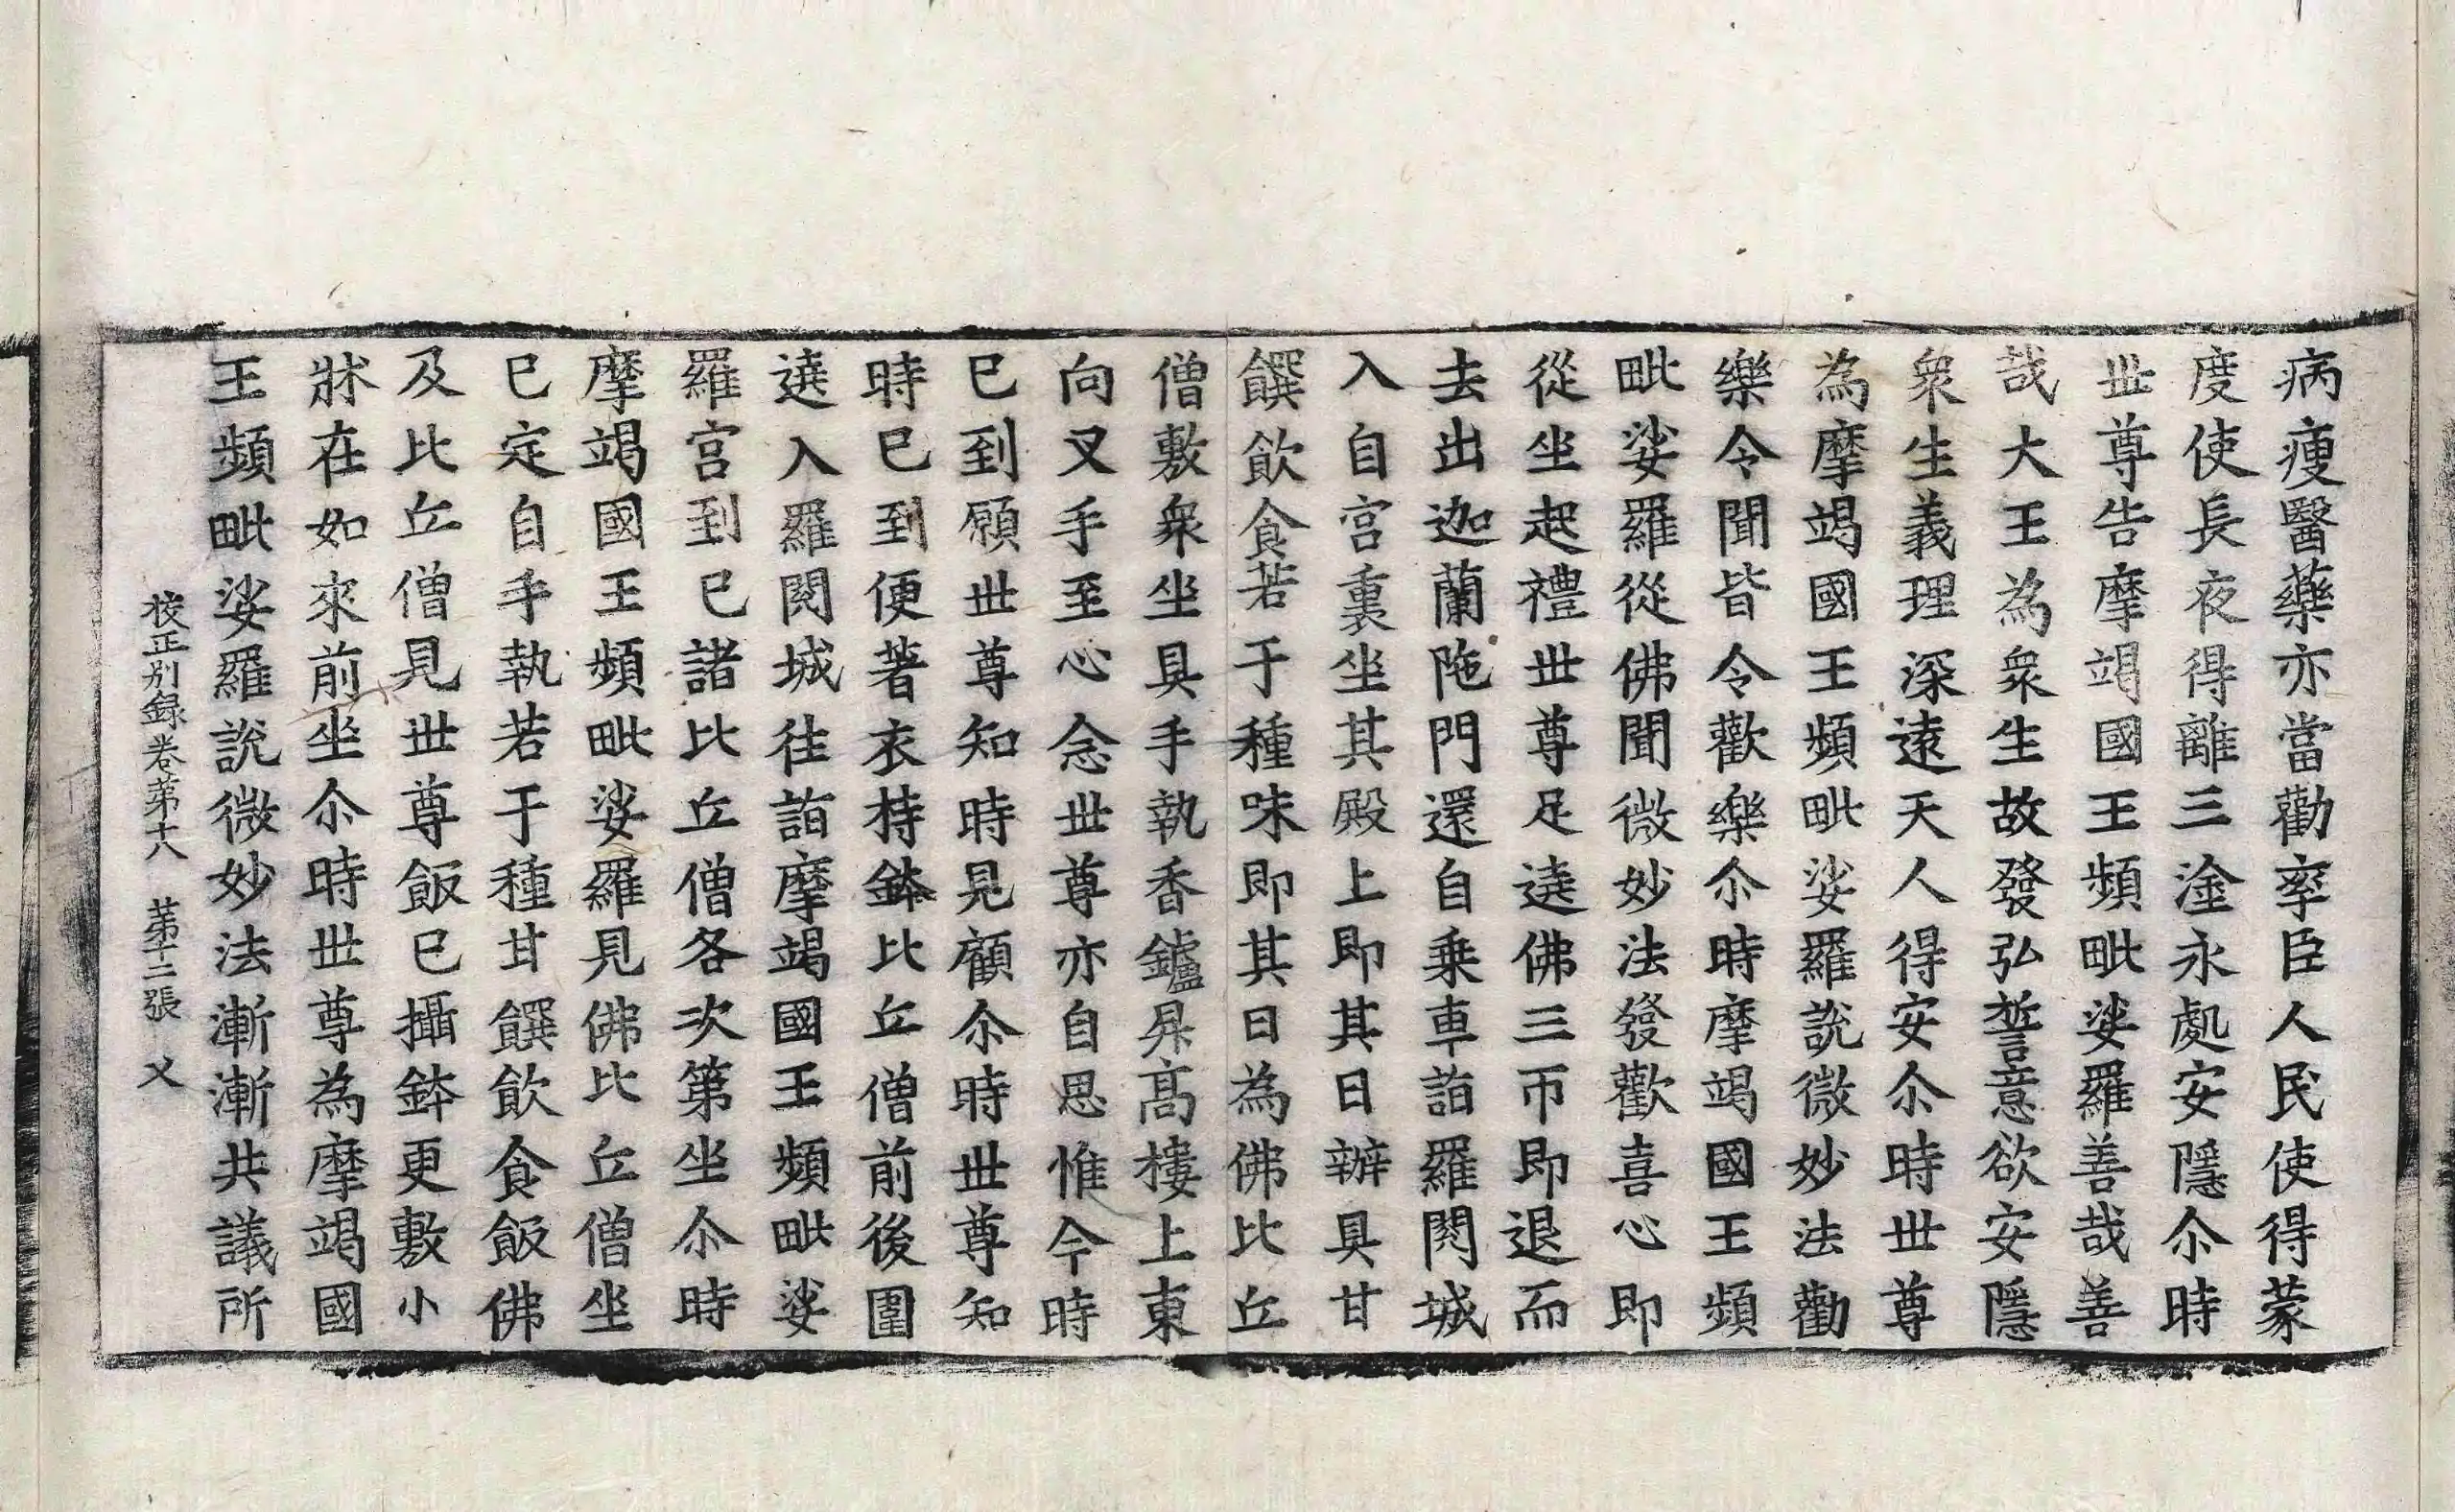 病瘦醫藥亦當勸率臣人民使得蒙
度使長夜得離三塗永處安隱尒時
世尊告摩竭國王頻毗娑羅善哉善
哉大王為衆生故發弘誓意欲安隱
衆生義理深遠天人得安尒時世尊
為摩竭國王頻毗娑羅說微妙法勸
樂令聞皆令歡樂尒時摩竭國王頻
毗娑羅從佛聞微妙法發歡喜心即
從坐起禮世尊足遶佛三帀即退而
去出迦蘭陁門還自乗車詣羅閱城
入自宮裏坐其殿上即其日辦具甘
饌飲食若干種味即其日為佛比丘
僧敷衆坐具手執香鑪昇高樓上東
向叉手至心念世尊亦自思惟今時
已到願世尊知時見顧尒時世尊知
時已到便著衣持鉢比丘僧前後圍
遶入羅閱城往詣摩竭國王頻毗娑
羅宮到已諸比丘僧各次第坐尒時
摩竭國王頻毗娑羅見佛比丘僧坐
已定自手執若干種甘饌飲食飯佛
及比丘僧見世尊飯已攝鉢更敷小
牀在如來前坐尒時世尊為摩竭國
王頻毗娑羅說微妙法漸漸共議所
校正別録卷第十八　第十二張　乂